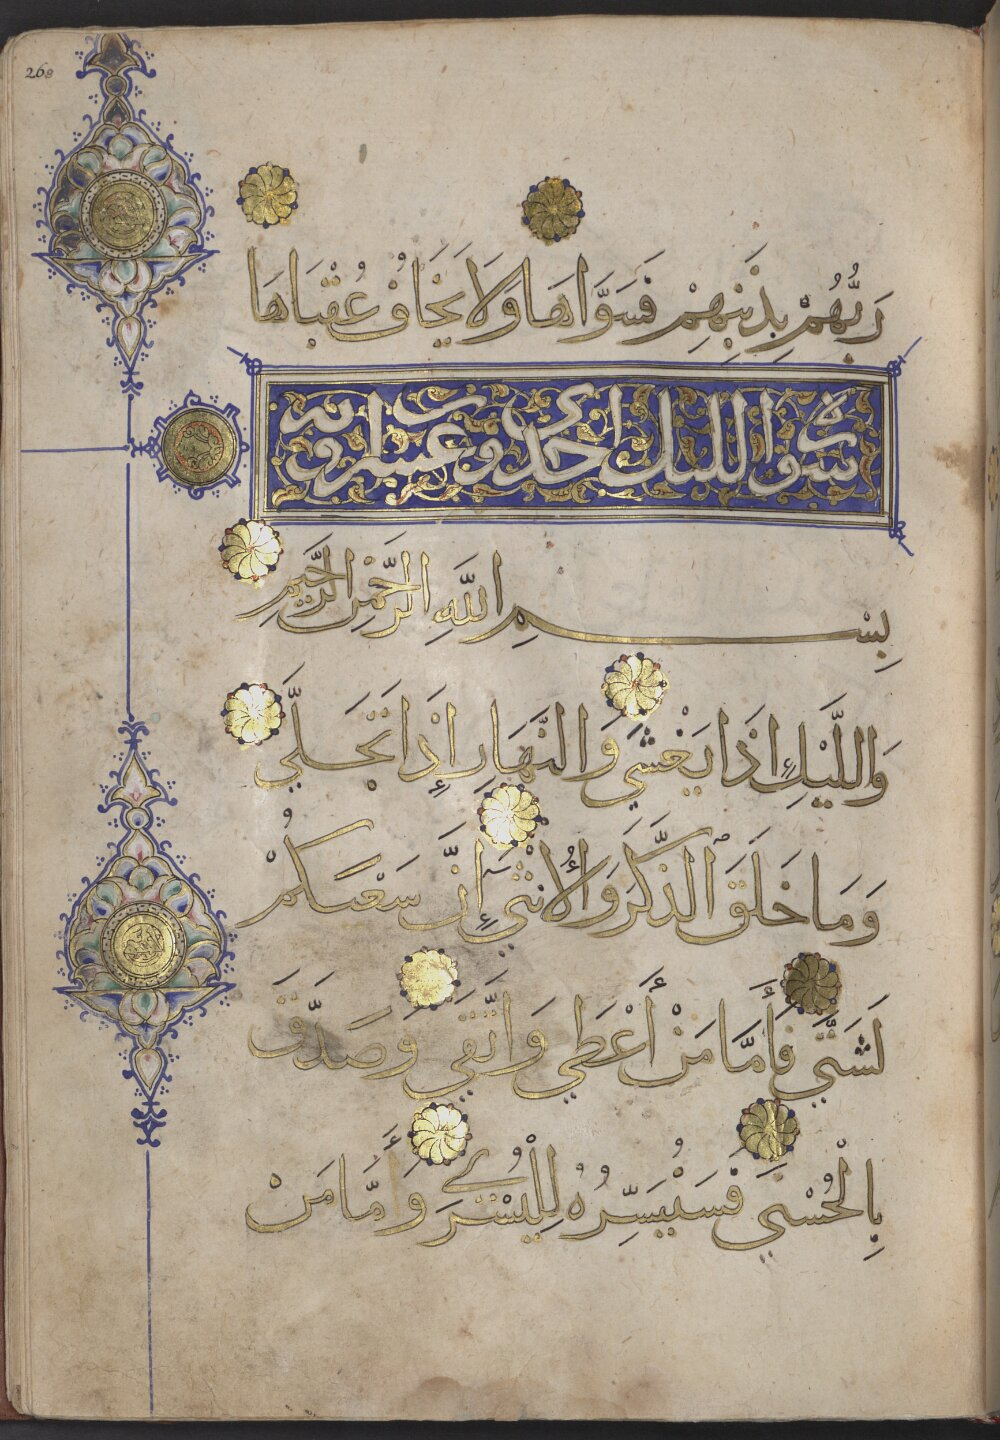 268
رَبُّهُمْ بِذَنبِهِمْ فَسَوَّاهَا وَلَا يَخَافُ عُقْبَاهَا
سورة الليل احدى وعشرون اية
بِسْمِ اللَّهِ الرَّحْمَنِ الرَّحِيمِ
وَاللَّيْلِ إِذَا يَغْشَى وَالنَّهَارِ إِذَا تَجَلَّى
وَمَا خَلَقَ الذَّكَرَ وَالْأُنْثَى إِنَّ سَعْيَكُمْ
لَشَتَّى فَأَمَّا مَنْ أَعْطَى وَاتَّقَى وَصَدَّقَ
بِالْحُسْنَى فَسَنُيَسِّرُهُ لِلْيُسْرَى وَأَمَّا مَنْ